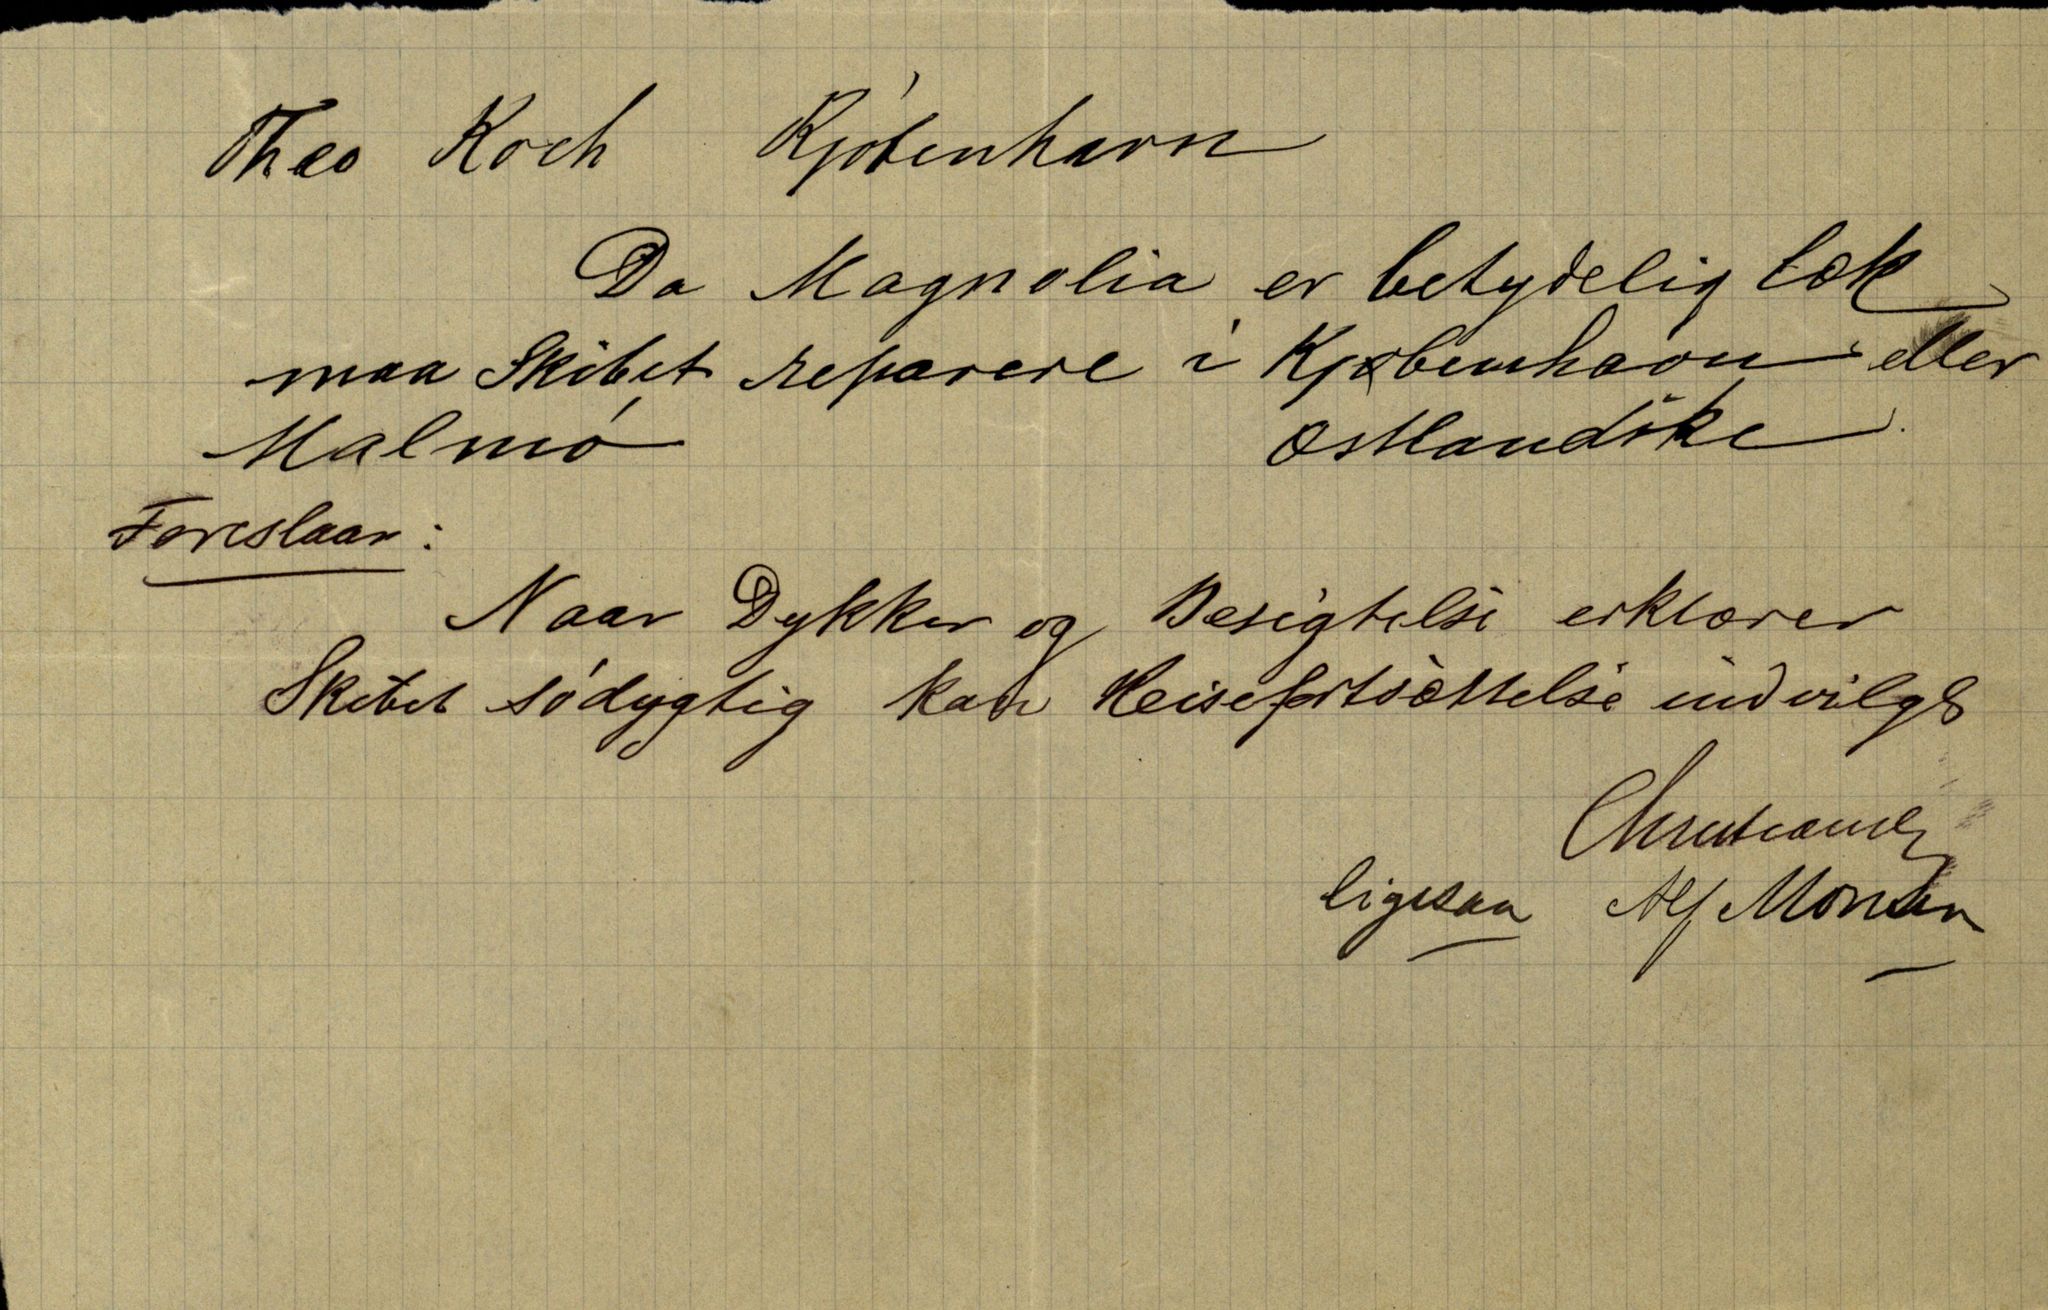 Theo Koch Kjøbenhavn
Da Magnolia er betydelig læk
maa Skibet reparere i Kjøbenhavn eller
Malmö Østlandske
Foreslaar:
Naar Dykker og Besigtelse erklærer
Skibet sødygtig kan Reisefortsættelse indvilges
ligesaa Alf Monsen